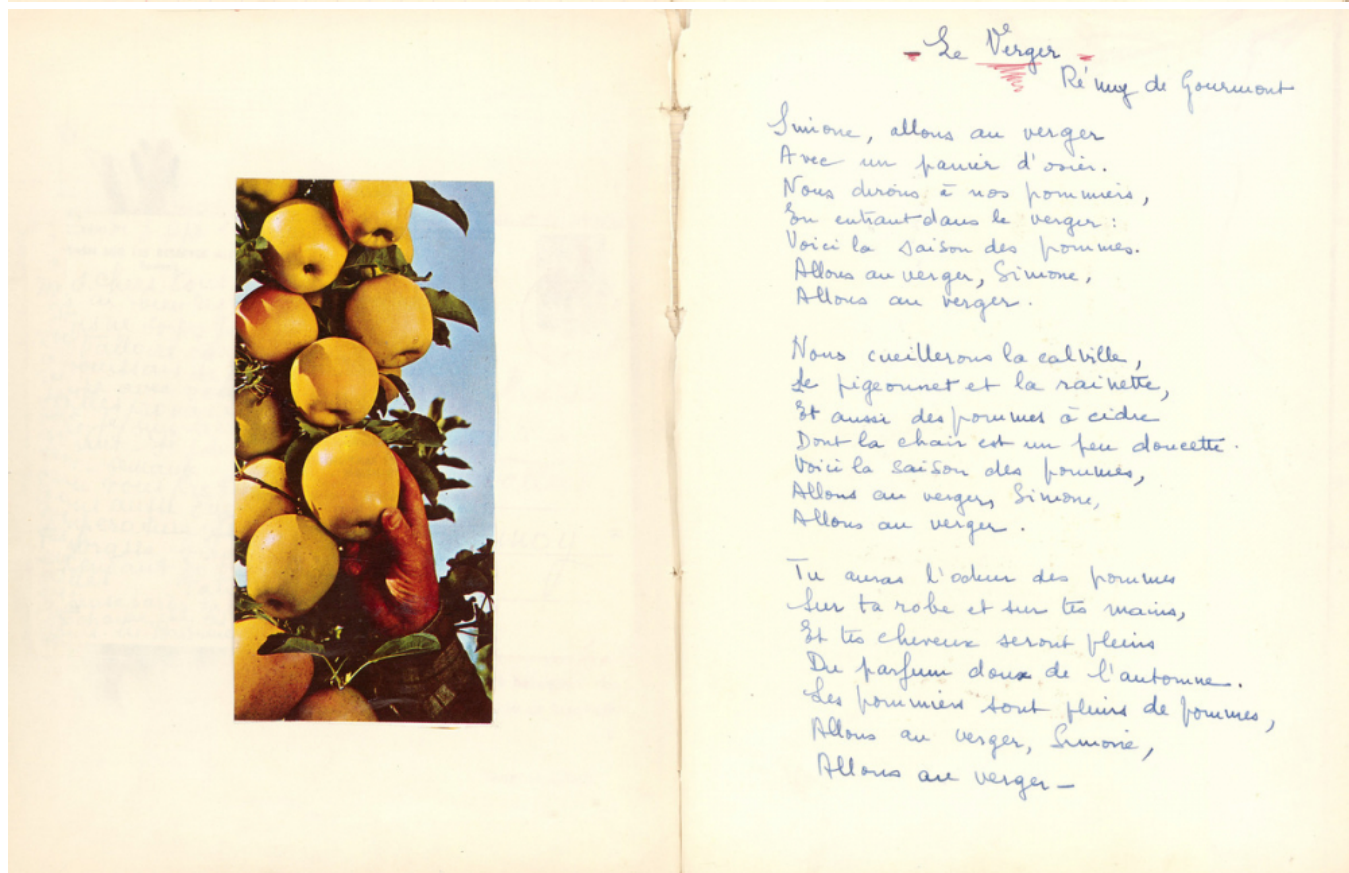 Le Verger
Rémy de Gourmont
Simione, allons au verger
Avec un panier d'osier.
Nous dirons à nos pommiers,
En entrant dans le verger :
Voici la saison des pommes.
Allons au verger, Simone,
Allons au verger.
Nous cueillerons la calville,
Le pigeonnet et la rainette,
Et aussi des pommes à cidre
Dont la chair est un peu doucette.
Voici la saison des pommes,
Allons au verger, Simone,
Allons au verger.
Tu auras l'odeur des pommes
Sur ta robe et sur tes mains,
Et tes cheveux seront pleins
Du parfum doux de l'automne.
Les pommiers sont pleins de pommes,
Allons au verger, Simone,
Allons au verger_